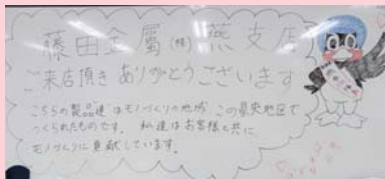 藤田金屬(株)燕支店
ご来店頂きありがとうございます
こちらの製品達はモノづくりの地域 この県央地区で
つくられたものです。私達はお客様と共に
モノづくりに貢献しています。